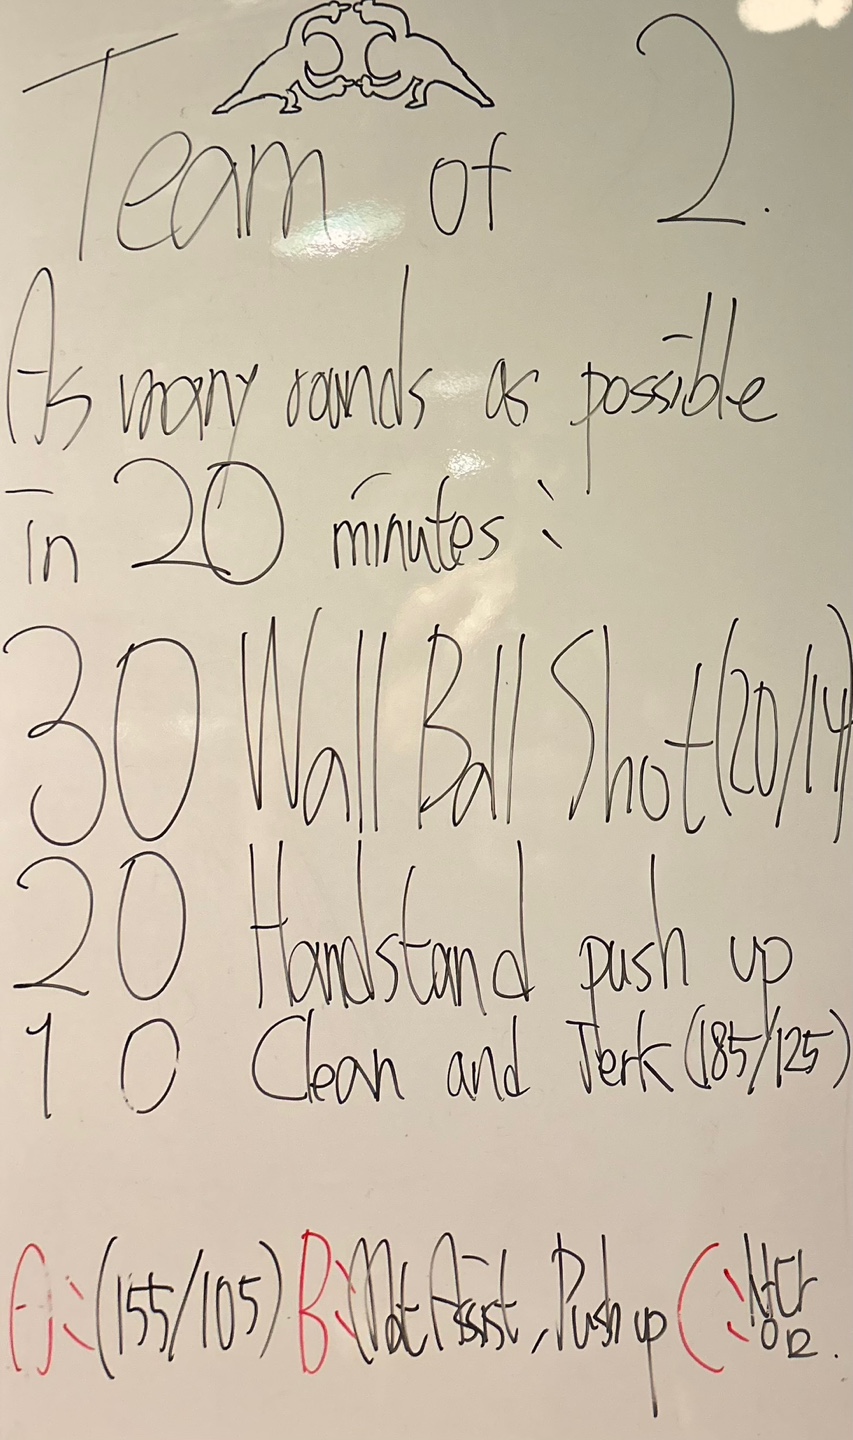 Team of 2.
As many rounds as possible
in 20 minutes:
30 Wall Ball Shot (20/14)
20 Handstand push up
10 Clean and Jerk (185/125)
A: (155/105) B: Mat Assist, Push up C:
or